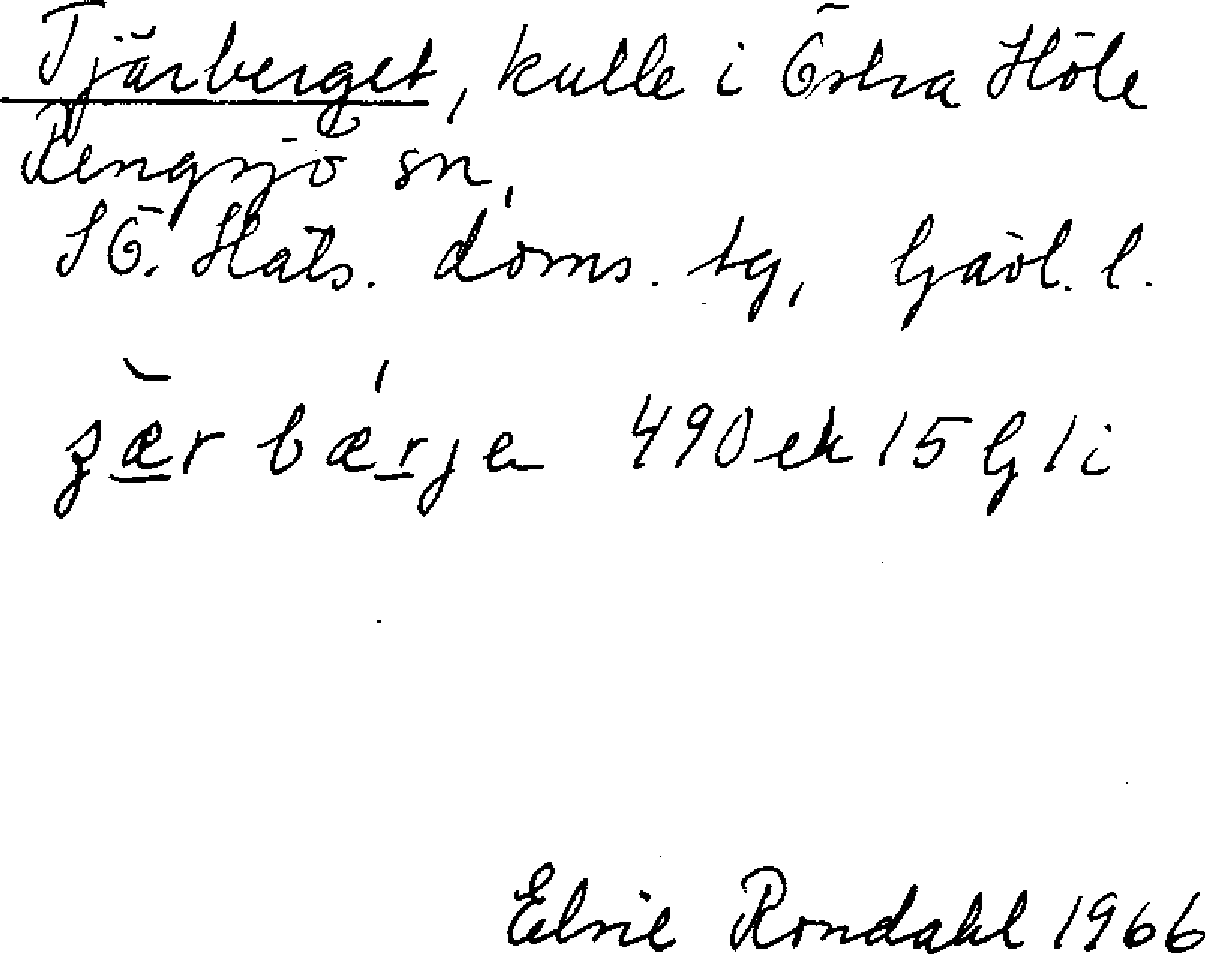 Tjärberget, kulle i Östra Höle
Rengsjö sn,
SÖ. Häls. doms. tg, Gävl. l.
bærje 490 ek 15 G 1 i
Elsie Rondahl 1966